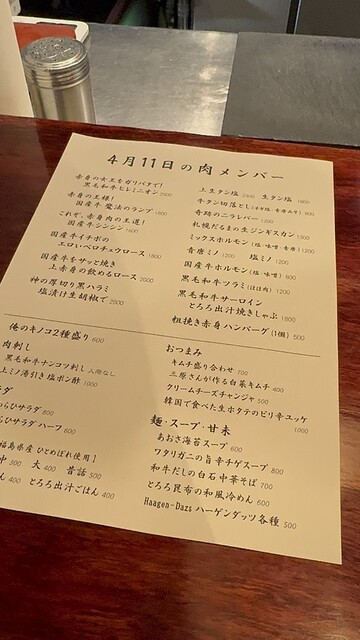 4月11日の肉メンバー
赤身の女王をガリバタで!
黒毛和牛ヒレミニオン 2900
赤身の王様!
国産牛 魔法のランプ 1800
これぞ、赤身肉の王道!
国産牛シンシン 1600
国産牛イチボの
エロいペロチュウロース 1800
国産牛モサッと焼き
上赤身の飲めるロース 2000
神の厚切り黒ハラミ
塩漬け生胡椒で 2500
上生タン塩 2400 生タン塩 1800
牛タン切落とし
奇跡のニラレバー 1200
札幌だるまの生ジンギスカン 1500
ミックスホルモン (塩・味噌・青唐) 1200
青唐ミノ 1200 塩ミノ 1200
国産牛ホルモン (塩・味噌) 800
黒毛和牛ツラミ (ほほ肉) 1200
黒毛和牛サーロイン
とろろ出汁焼きしゃぶ 1800
粗挽き赤身ハンバーグ (1個) 500
俺のキノコ2種盛り 600
肉刺し
黒毛和牛ナンコツ刺し 入荷なし
上ミノ湯引き塩ポン酢 1000
サラダ 800
サラダ ハーフ 600
福島県産 ひとめぼれ使用!
中 300 大 400 昔話 500
400 とろろ出汁ごはん 400
おつまみ
キムチ盛り合わせ 700
三原さんが作る白菜キムチ 400
クリームチーズチャンジャ 500
韓国で食べた生ホタテのピリ辛ユッケ 1000
麺・スープ・甘未
あおさ海苔スープ 600
ワタリガニの旨辛チゲスープ 800
和牛だしの白石中華そば 700
とろろ昆布の和風冷めん 600
Haagen-Dazs ハーゲンダッツ各種 500